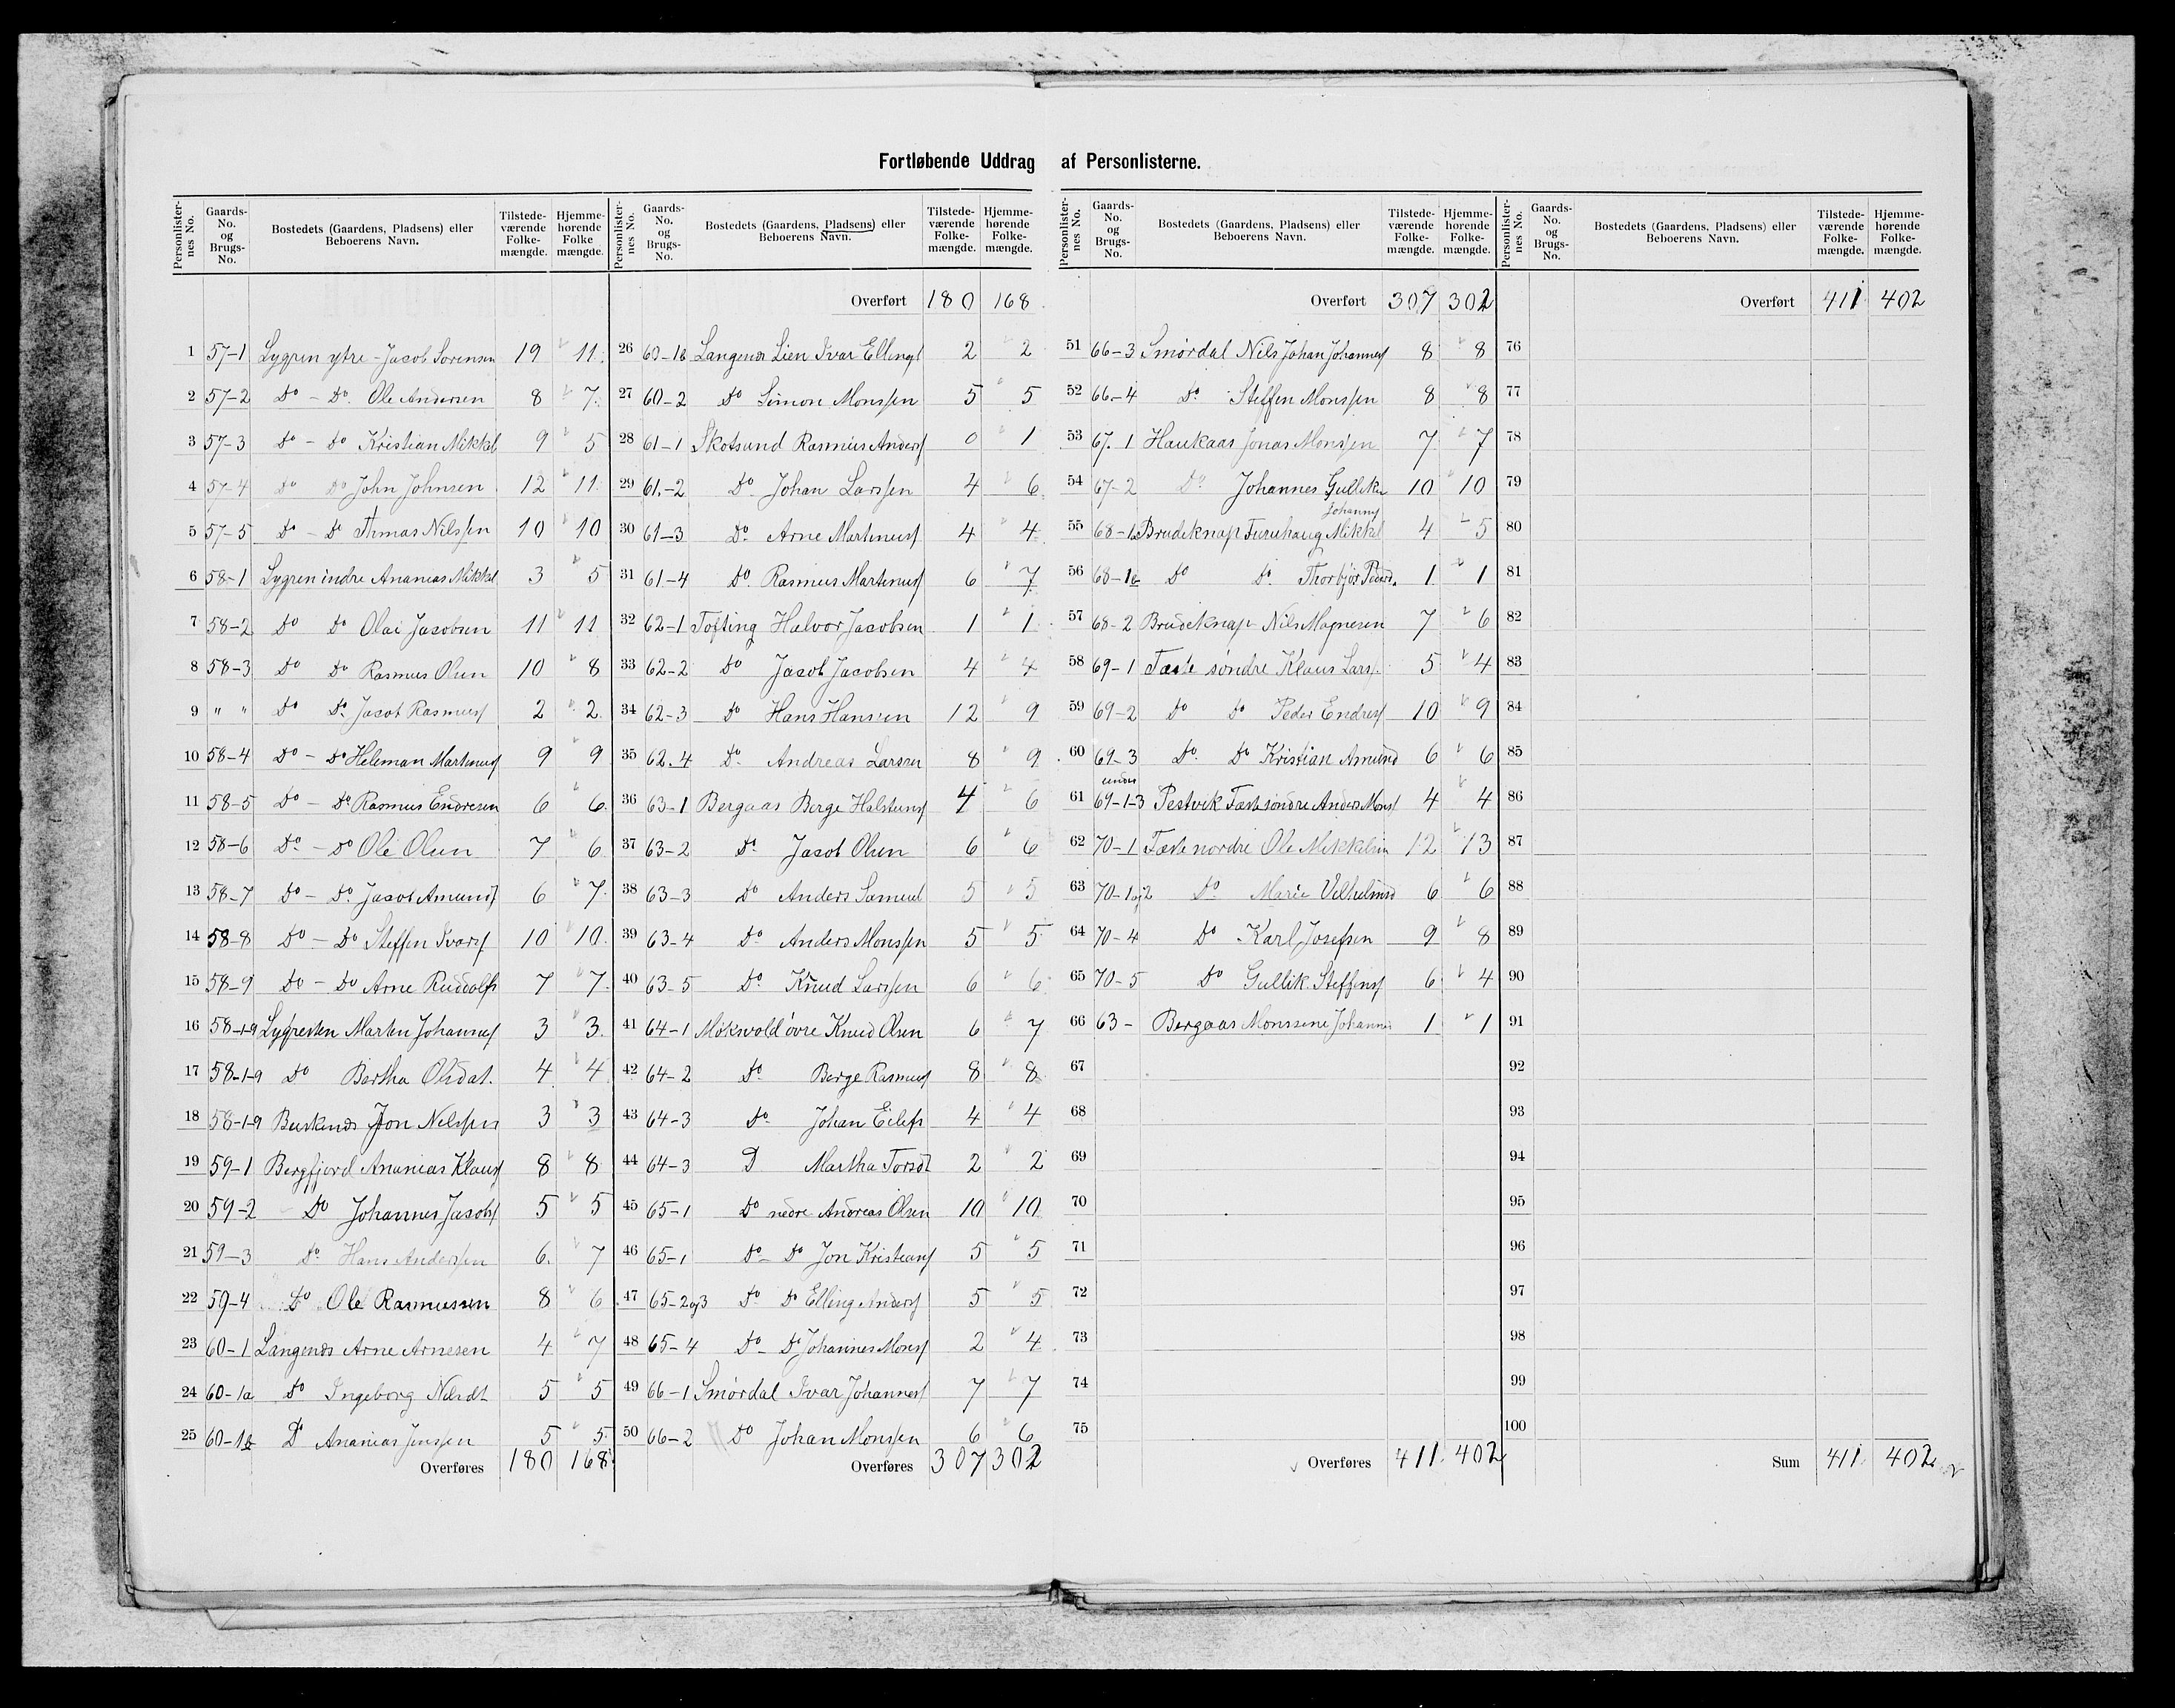 Fortløbende Uddrag af Personlisterne.
Personlister-nes No. Gaards-No. og Brugs-No. Bostedets (Gaardens, Pladsens) eller Beboerens Navn. Tilstede-værende Folke-mængde. Hjemme-hørende Folke mængde.
1 57-1 Lygren ytre - Jacob Sorensen 19 11
2 57-2 Do - Do Ole Andersen 8 7
3 57-3 Do - Do Kristian Mikkel 9 5
4 57-4 Do Do John Johnsen 12 11
5 57-5 Do - Do Thmas Nilssen 10 10
6 58-1 Lygren indre Ananias Mikkel 3 5
7 58-2 Do Do Olai Jacobsen 11 11
8 58-3 Do Do Rasmus Olsen 10 8
9 " " Do Do Jacob Rasmus 2 2
10 58-4 Do - Do Heleman Martinus 9 9
11 58-5 Do - Do Rasmus Endresen 6 6
12 58-6 Do - Do Ole Olsen 7 6
13 58-7 Do - Do Jacob Amund 6 7
14 58-8 Do - Do Steffen Ivars 10 10
15 58-9 Do - Do Arne Ruddolfs 7 7
16 58-1-9 Lygresten Marten Johannes 3 3
17 58-1-9 Do Bertha Olsdat. 4 4
18 58-1-9 Buskenes Jon Nelssen 3 3
19 59-1 Bergfjord Ananias Klaus 8 8
20 59-2 Do Johannes Jacobs 5 5
21 59-3 Do Hans Anderssen 6 7
22 59-4 Do Ole Rasmussen 8 6
23 60-1 Langenes Arne Arnesen 4 7
24 60-1a Do Ingeborg Nilsdt 5 5
25 60-1b Do Ananias Jenssen 5 5
Overføres 180 168
Personlister-nes No. Gaards-No. og Brugs-No. Bostedets (Gaardens, Pladsens) eller Beboerens Navn. Tilstede-værende Folke-mængde. Hjemme-hørende Folke-mængde.
Overført 180 168
26 60-1b Langenes Lien Ivar Ellings 2 2
27 60-2 Do Simon Monssen 5 5
28 61-1 Skotsund Rasmus Anders 0 1
29 61-2 Do Johan Larssen 4 6
30 61-3 Do Arne Martinus 4 4
31 61-4 Do Rasmus Martinus 6 7
32 62-1 Tofting Halvor Jacobsen 1 1
33 62-2 Do Jacob Jacobsen 4 4
34 62-3 Do Hans Hansen 12 9
35 62-4 Do Andreas Larsen 8 9
36 63-1 Bergaas Berge Halstens 4 6
37 63-2 Do Jacob Olsen 6 6
38 63-3 Do Anders Samuel 5 5
39 63-4 Do Anders Monssen 5 5
40 63-5 Do Knud Larssen 6 6
41 64-1 Møksvold øvre Knud Olsen 6 7
42 64-2 Do Berge Rasmus 8 8
43 64-3 Do Johan Eilefs 4 4
44 64-3 D Martha Torsdt 2 2
45 65-1 Do nedre Andreas Olsen 10 10
46 65-1 Do - Do Jon Kristians 5 5
47 65-2og3 Do Do Elling Anders 5 5
48 65-4 Do - Do Johannes Mons 2 4
49 66-1 Smørdal Ivar Johannes 7 7
50 66-2 Do Johan Monssen 6 6
Overføres 307 302
Personlister-nes No. Gaards-No. og Brugs-No. Bostedets (Gaardens, Pladsens) eller Beboerens Navn. Tilstede-værende Folke-mængde. Hjemme-hørende Folke-mængde.
Overført 307 302
51 66-3 Smørdal Nils Johan Johannes 8 8
52 66-4 Do Steffen Monssen 8 8
53 67-1 Haukaas Jonas Monssen 7 7
54 67-2 Do Johannes Gulliksen 10 10
Johannes
55 68-1a Brudeknap Furuhaug Mikkel 4 5
56 68-1b Do Do Thorbjør Pedersd. 1 1
57 68-2 Brudeknap Nils Magnesen 7 6
58 69-1 Tæste søndre Klaus Lars 5 4
59 69-2 Do Do Peder Endres 10 9
60 69-3 Do Do Kristian Amund 6 6
under
61 69-1-3 Pestvik Tæste søndre Anders Mons 4 4
62 70-1 Tæste nordre Ole Mikkelsen 12 13
63 70-1og2 Do Marie Vilhelmsd 6 6
64 70-4 Do Karl Josefsen 9 8
65 70-5 Do Gullik Steffens 6 4
66 63- Bergaas Monssene Johannes 1 1
67
68
69
70
71
72
73
74
75
Overføres 411 402
Personlister-nes No. Gaards-No. og Brugs-No. Bostedets (Gaardens, Pladsens) eller Beboerens Navn. Tilstede-værende Folke-mængde. Hjemme-hørende Folke-mængde.
Overført 411 402
76
77
78
79
80
81
82
83
84
85
86
87
88
89
90
91
92
93
94
95
96
97
98
99
100
Sum 411 402